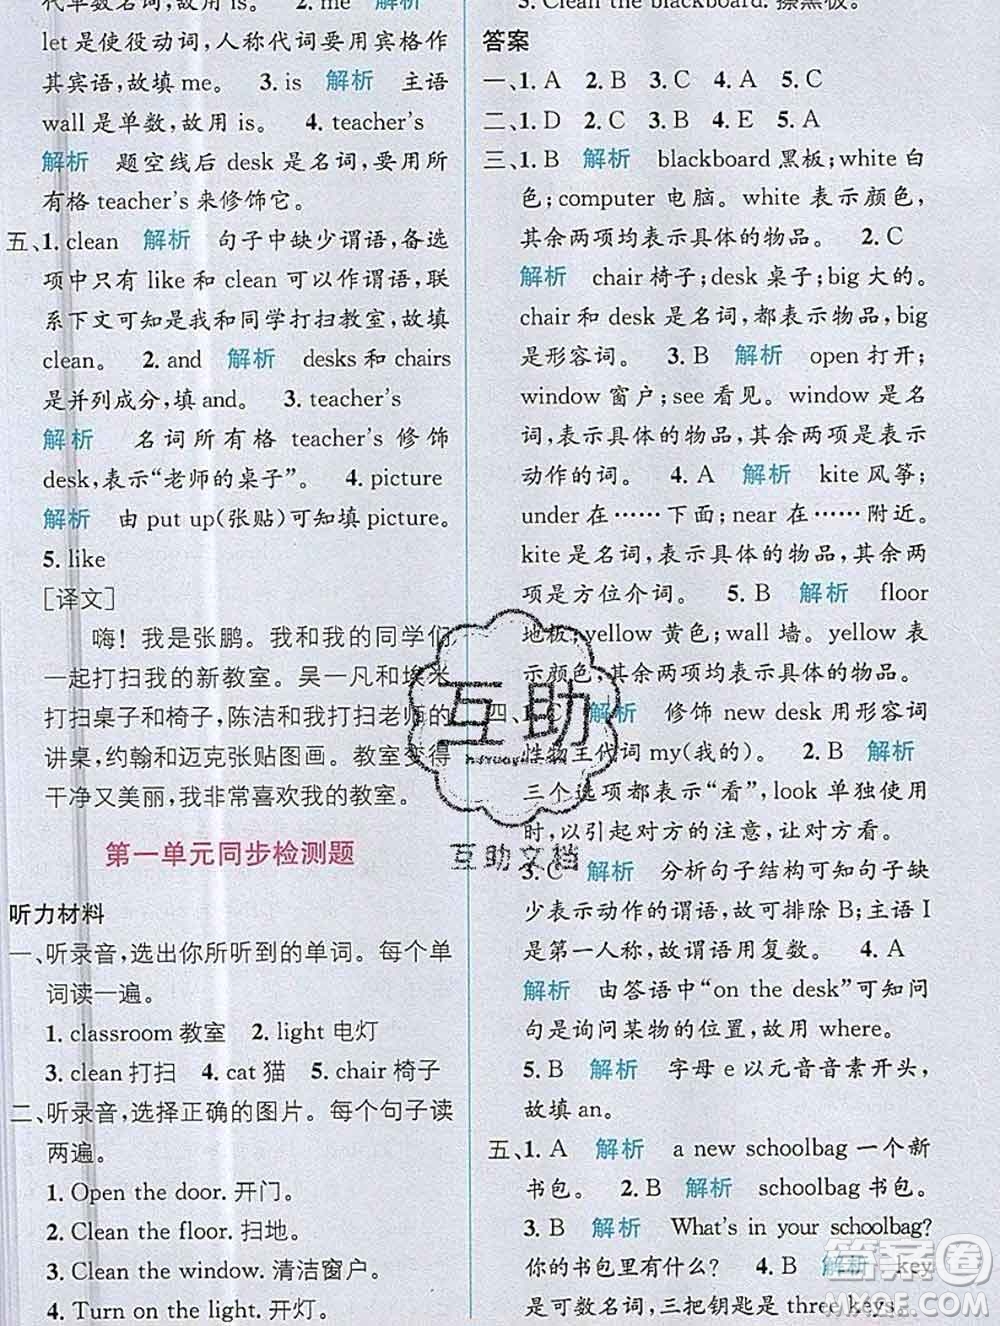 代单数名词,故用 is。 2. me 解析
let 是使役动词,人称代词要用宾格作
其宾语,故填 me。 3. is 解析 主语
wall 是单数,故用 is。 4. teacher's
解析 题空线后 desk 是名词,要用所
有格 teacher's 来修饰它。
五、1. clean 解析 句子中缺少谓语,备选
项中只有 like 和 clean 可以作谓语,联
系下文可知是我和同学打扫教室,故填
clean。 2. and 解析 desks 和 chairs
是并列成分,填 and。 3. teacher's
解析 名词所有格 teacher's 修饰
desk,表示“老师的桌子”。 4. picture
解析 由 put up(张贴)可知填 picture。
5. like
[译文]
嗨!我是张鹏。我和我的同学们
一起打扫我的新教室。吴一凡和埃米
打扫桌子和椅子,陈洁和我打扫老师的
讲桌,约翰和迈克张贴图画。教室变得
干净又美丽,我非常喜欢我的教室。
第一单元同步检测题
听力材料
一、听录音,选出你所听到的单词。每个单
词读一遍。
1. classroom 教室 2. light 电灯
3. clean 打扫 4. cat 猫 5. chair 椅子
二、听录音,选择正确的图片。每个句子读
两遍。
1. Open the door. 开门。
2. Clean the floor. 扫地。
3. Clean the window. 清洁窗户。
4. Turn on the light. 开灯。
5. Clean the blackboard. 擦黑板。
答案
一、1. A 2. B 3. C 4. A 5. C
二、1. D 2. C 3. B 4. E 5. A
三、1. B 解析 blackboard 黑板;white 白
色;computer 电脑。white 表示颜色,
其余两项均表示具体的物品。 2. C
解析 chair 椅子;desk 桌子;big 大的。
chair 和 desk 是名词,都表示物品,big
是形容词。 3. B 解析 open 打开;
window 窗户;see 看见。window 是名
词,表示具体的物品,其余两项是表示
动作的词。 4. A 解析 kite 风筝;
under 在……下面;near 在……附近。
kite 是名词,表示具体的物品,其余两
项是方位介词。 5. B 解析 floor
地板;yellow 黄色;wall 墙。yellow 表
示颜色,其余两项表示具体的物品。
四、1. C 解析 修饰 new desk 用形容词
性物主代词 my(我的)。 2. B 解析
三个选项都表示“看”,look 单独使用
时,以引起对方的注意,让对方看。
3. C 解析 分析句子结构可知句子缺
少表示动作的谓语,故可排除 B;主语 I
是第一人称,故谓语用复数。 4. A
解析 由答语中“on the desk”可知问
句是询问某物的位置,故用 where。
5. B 解析 字母 e 以元音音素开头,
故填 an。
五、1. A 解析 a new schoolbag 一个新
书包。 2. B 解析 schoolbag 书包。
3. B 解析 What's in your schoolbag?
你的书包里有什么? 4. B 解析 key
是可数名词,三把钥匙是 three keys。
互助
互助文档
答案圈